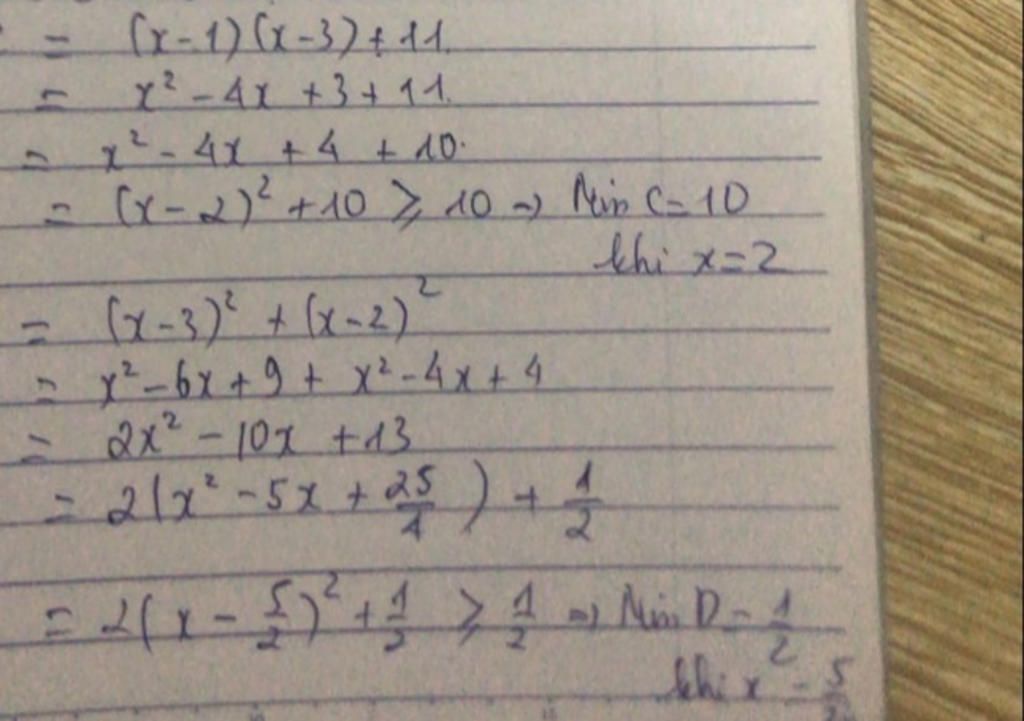 = (x-1)(x-3)+11.
= x² - 4x +3+11.
= x² - 4x +4 +10.
= (x-2)² +10 ⩾ 10 → Min C=10
khi x=2
= (x-3)² + (x-2)²
= x²-6x+9 + x²-4x+4
= 2x² -10x +13
= 2(x² -5x + 25/4) + 1/2
= 2(x - 5/2)² + 1/2 ⩾ 1/2 → Min D = 1/2
khi x = 5/2